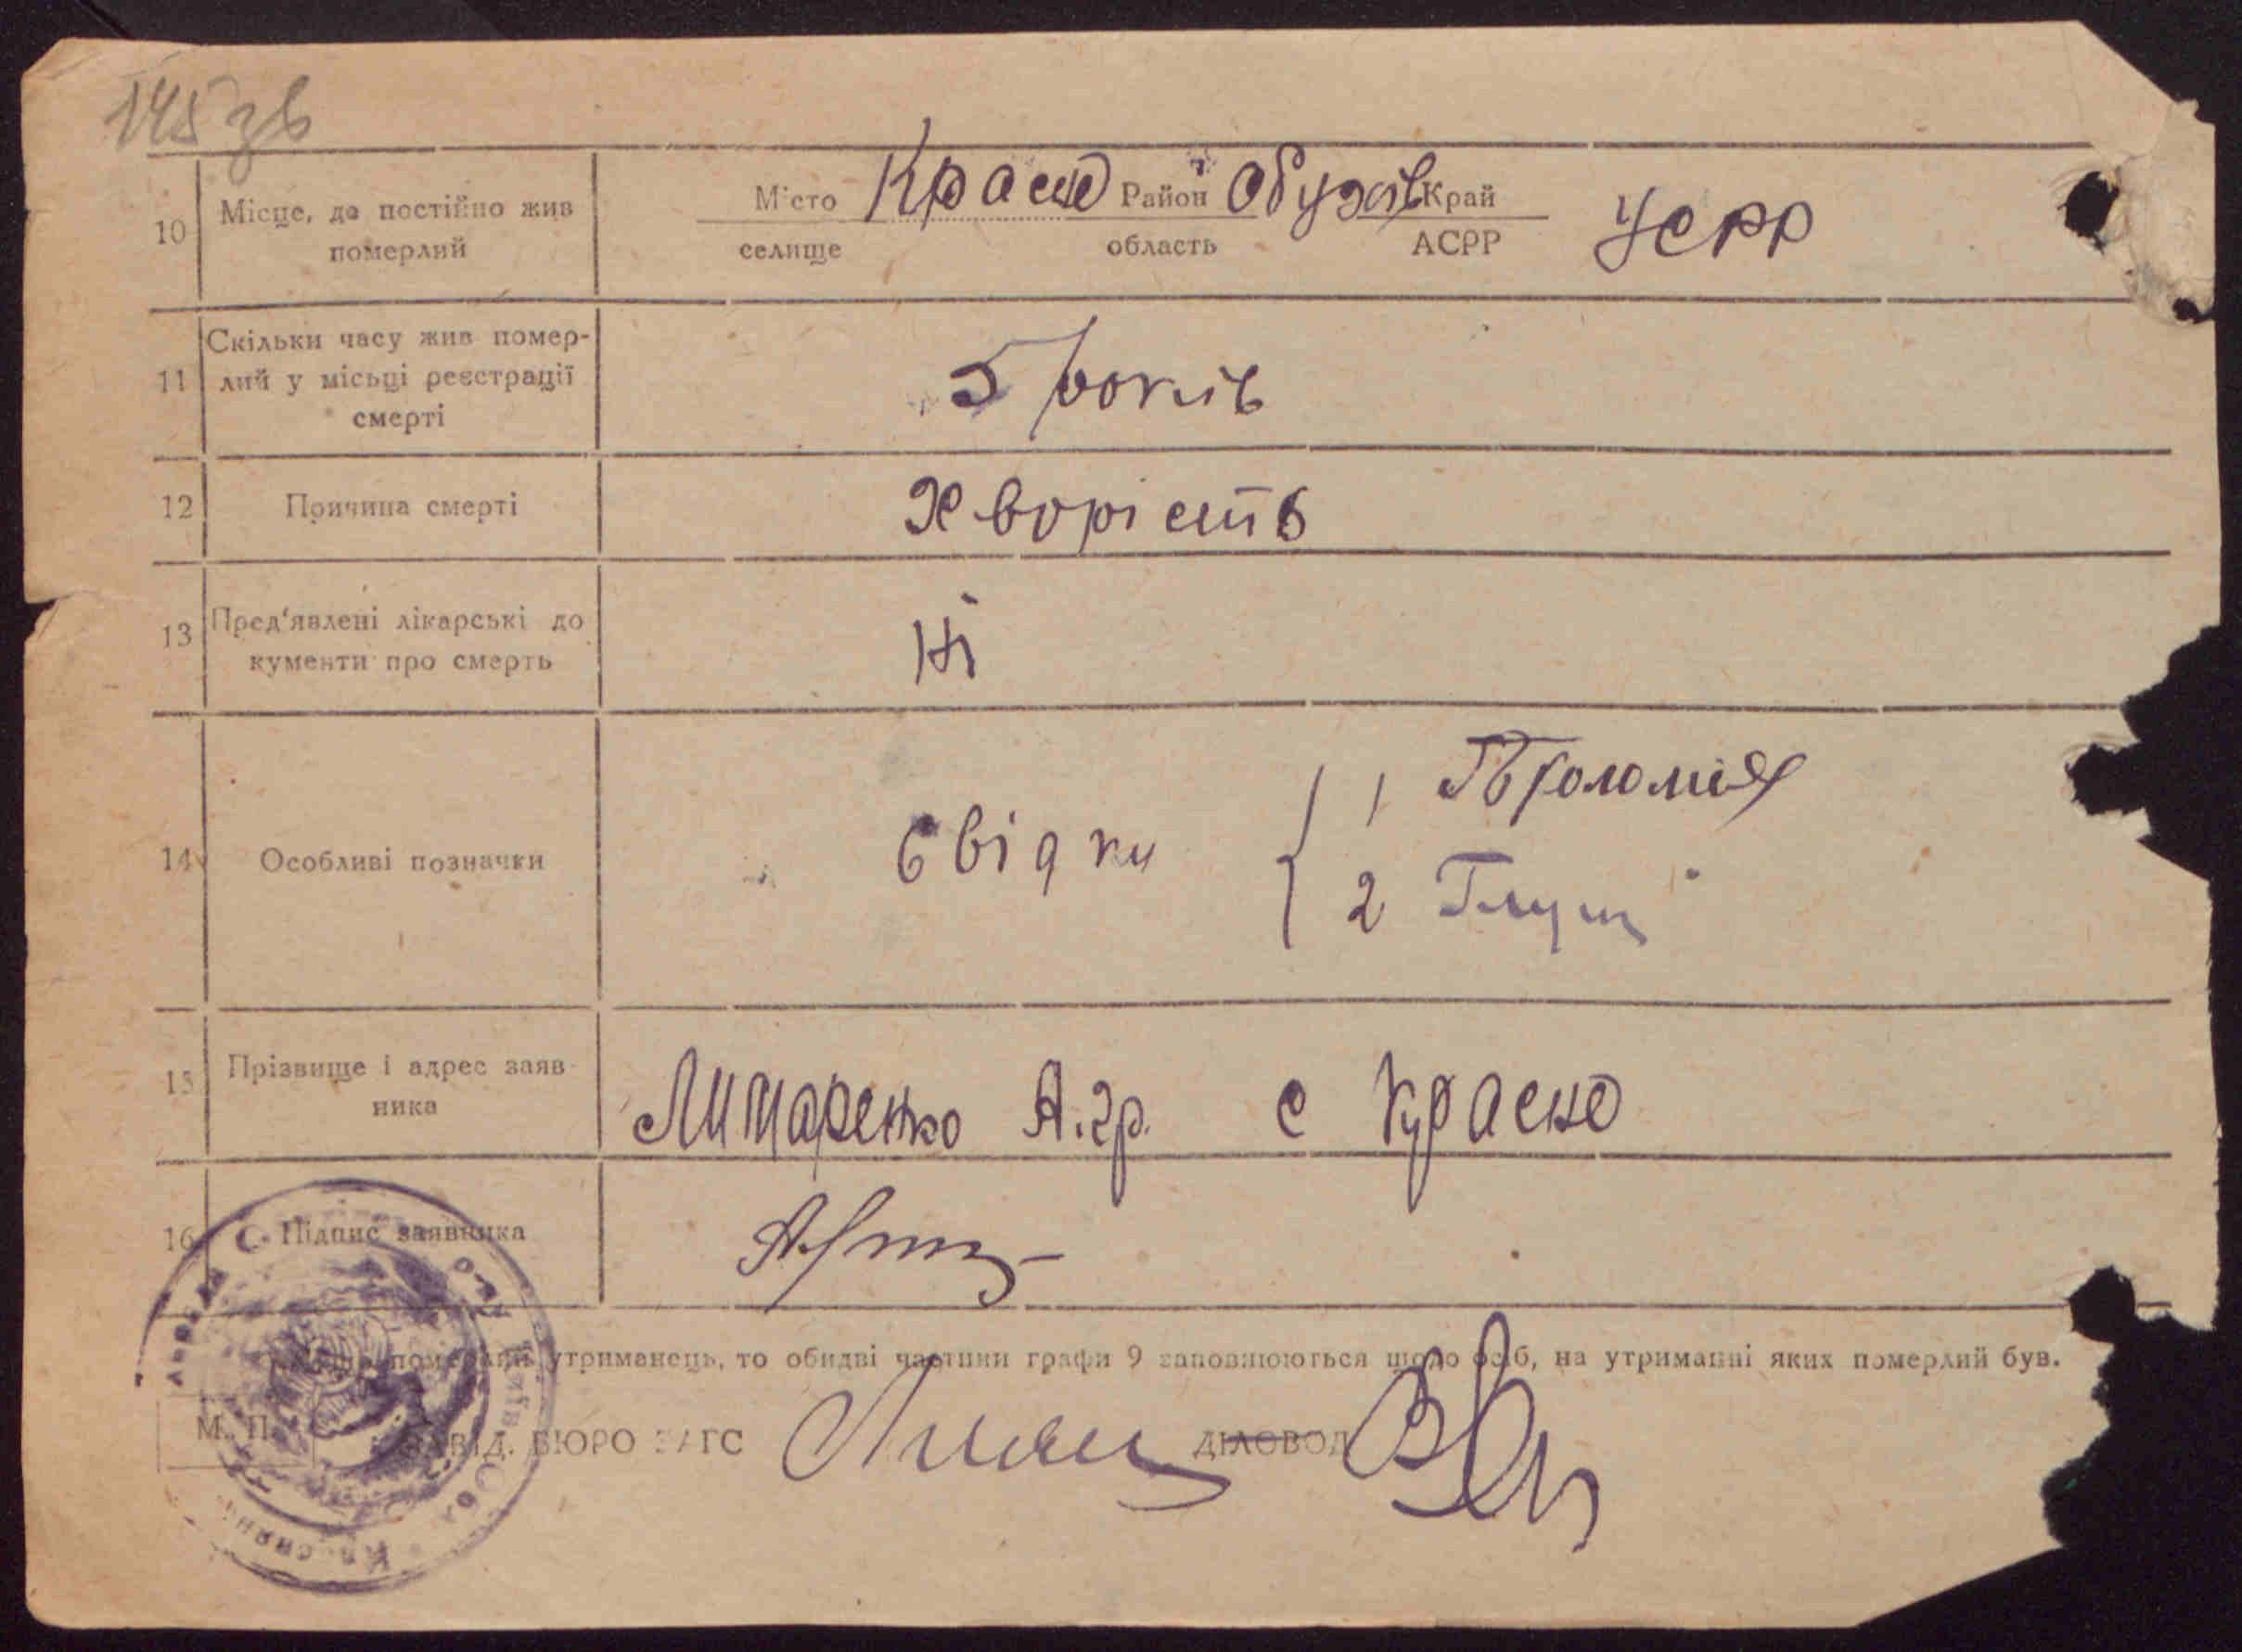 145 зв
10 Місце, де постійно жив померлий
Місто Красне Район Обухів Край УСРР
селище область АСРР
11 Скільки часу жив помер-
лий у місьці реєстрації
смерті
5 років
12 Причина смерті Хворість
13 Пред'явлені лікарські до
кументи про смерть
Ні
14 Особливі позначки Свідки
1
2
15 Прізвище і адрес заяв-
ника
Лимаренко А. гр. с Красне
16 Підпис заявника
померлий утриманець, то обидві частини графи 9 заповнюються щодо осіб, на утриманні яких померлий був.
М. П. ЗАВІД. БЮРО ЗАГС ДІЛОВОД